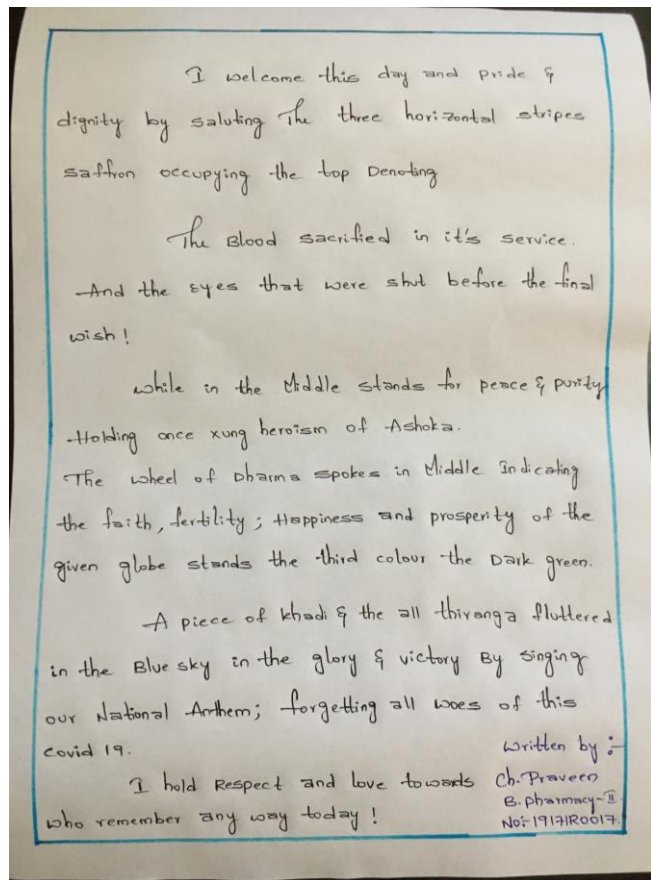 I welcome this day and pride &
dignity by saluting The three horizontal stripes
saffron occupying the top Denoting
The Blood sacrified in it's service.
And the eyes that were shut before the final
wish!
while in the Middle stands for peace & purity
Holding once xung heroism of Ashoka.
The wheel of Dharma spokes in Middle Indicating
the faith, fertility; Happiness and prosperity of the
given globe stands the third colour the Dark green.
A piece of khadi & the all thiranga fluttered
in the Blue sky in the glory & victory By singing
our National Anthem; forgetting all woes of this
Covid 19.
I hold Respect and love towards
who remember any way today!
written by :-
Ch. Praveen
B. pharmacy-II
No:- 19171R0017.